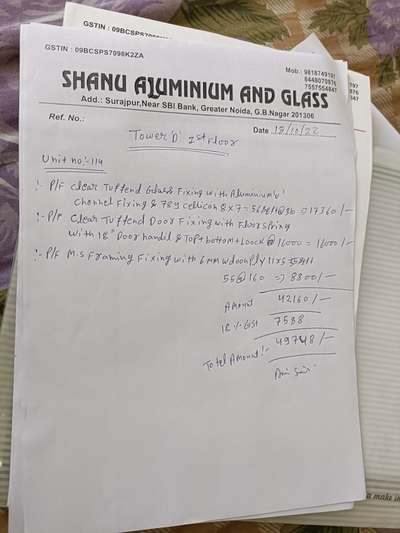 GSTIN : 09BCSPS709
GSTIN : 09BCSPS7098K2ZA
Mob : 9818749197
8448070876
7557554847
SHANU ALUMINIUM AND GLASS
Add.: Surajpur,Near SBI Bank, Greater Noida, G.B.Nagar 201306
Ref. No.:
Date 18/10/22
Tower D' 1st Floor
Unit no:- 114
:- P/F Clear Tuffend Glass Fixing with Aluminium
channel Fixing & 789 cellicon 8x7=56 @ => 17360/-
:- P/F Clear Tuffend Door Fixing with Floor Spring
with 18" Door handil & Top+bottom+Loock @ 16000 - 16000/-
:- P/F M.S Framing Fixing with 6MM woodnply 11x5
55@160 => 8800/-
Amount 42160/-
18%. GST 7588
Totel Amount:- 49748/-
a make in